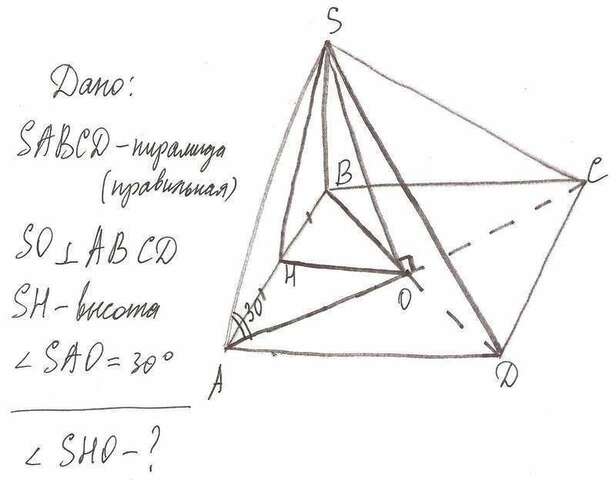 Дано:
SABCD - пирамида
(правильная)
SO⊥ABCD
SH - высота
∠SAO = 30°
∠SHO - ?
S
B
C
H
O
30°
A
D